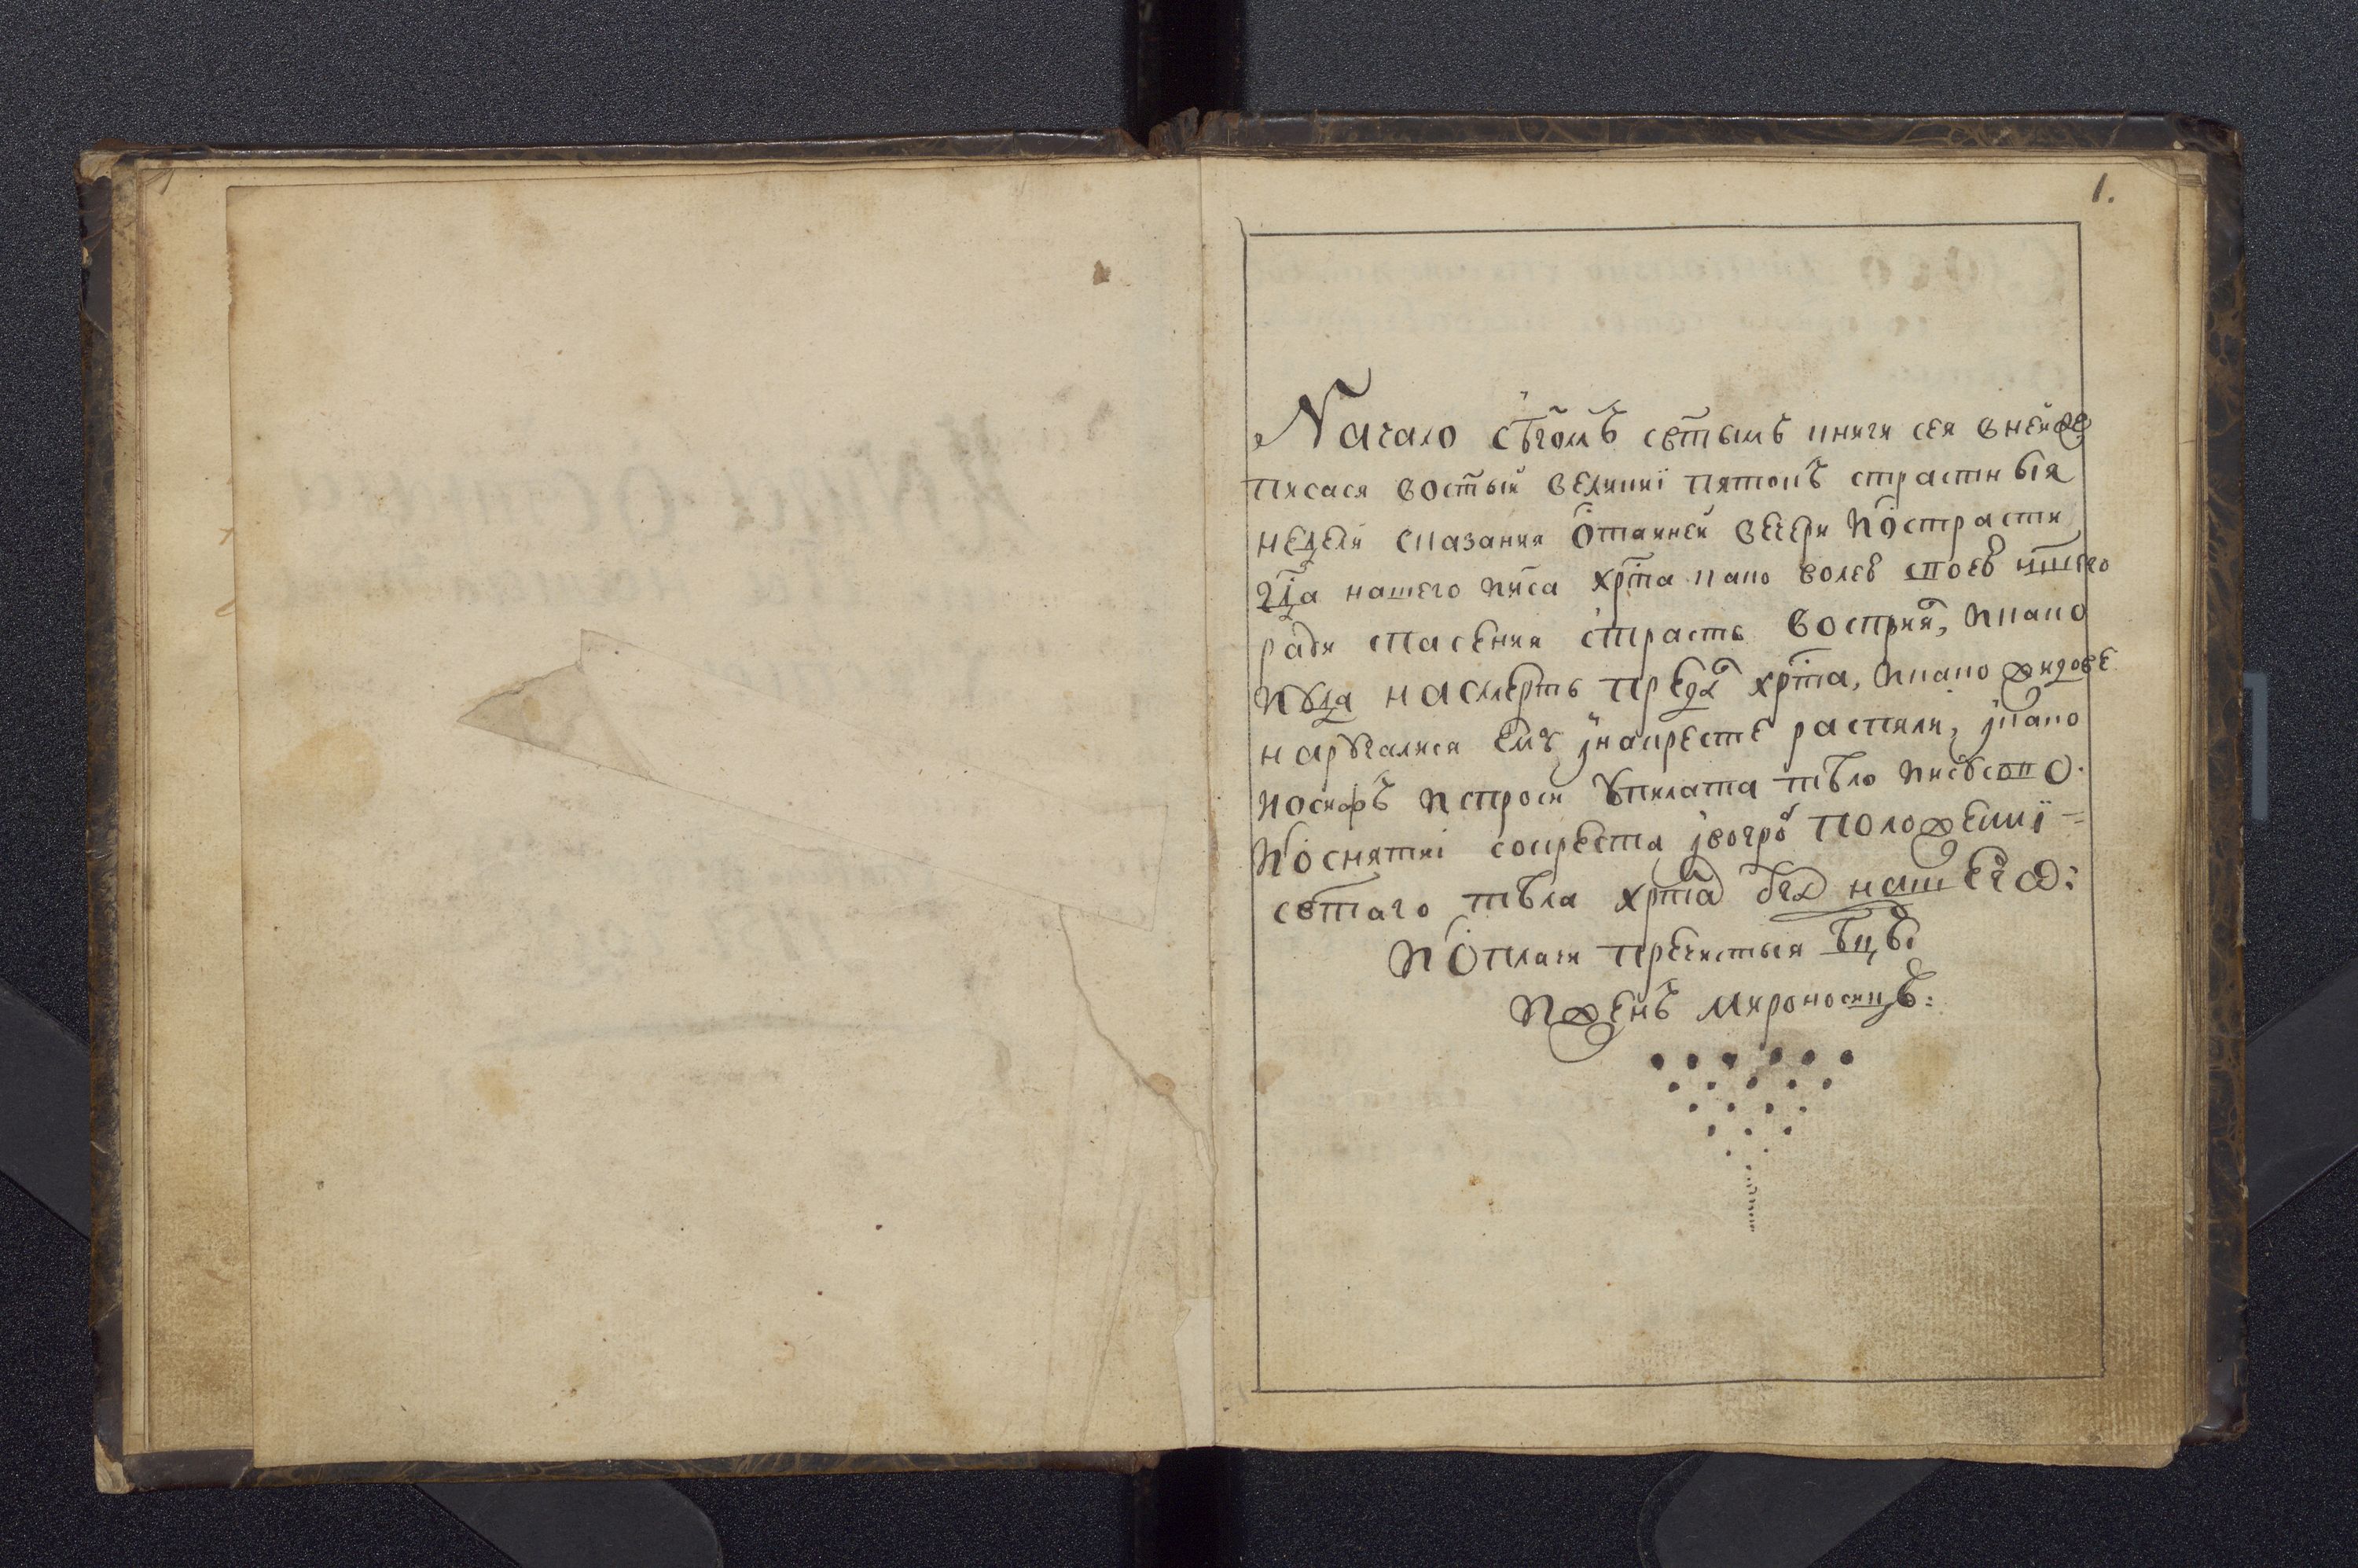 1.
Начало съ бгомъ свтымъ книги сея внейже
писася во стый великиі пятокъ страстныя
недели сказания ѡ тайней вечери и ѡ страсти
гда нашего ииса хрта како волею своею ншего
ради спасения страсть восприя, и како
июда на смерть предā хрта, и како жидове
наругалися ему, и на кресте распяли, и како
иосифъ испроси у пилата тѣло иисусово.
и ѡ снятиі со креста, и во гробъ положениі
свтаго тѣла хрта бга нашего:
и ѡ плачи пречистыя бцы
и женъ мироносицъ: